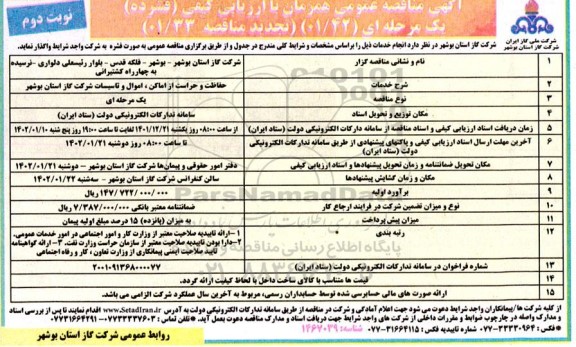 آگهی مناقصه عمومی همزمان با ارزیابی کیفی (فشرده)
یک مرحله ای (۰۱/۴۲) (تجدید مناقصه ۰۱/۳۳)
نوبت دوم
شرکت ملی گاز ایران
شرکت گاز استان بوشهر
شرکت گاز استان بوشهر در نظر دارد انجام خدمات ذیل را براساس مشخصات و شرایط کلی مندرج در جدول و از طریق برگزاری مناقصه عمومی به صورت فشرده به شرکت واجد شرایط واگذار نماید.
۱ نام و نشانی مناقصه گزار شرکت گاز استان بوشهر - بوشهر - فلکه قدس - بلوار رئیسعلی دلواری - نرسیده به چهارراه کشتیرانی
۲ شرح خدمات حفاظت و حراست از اماکن ، اموال و تاسیسات شرکت گاز استان بوشهر
۳ نوع مناقصه یک مرحله ای
۴ مکان توزیع و تحویل اسناد سامانه تدارکات الکترونیکی دولت (ستاد ایران)
۵ زمان دریافت اسناد ارزیابی کیفی و اسناد مناقصه از سامانه تدارکات الکترونیکی دولت (ستاد ایران) از ساعت ۰۸:۰۰ روز یکشنبه ۱۴۰۱/۱۲/۲۱ لغایت تا ساعت ۱۹:۰۰ روز پنج شنبه ۱۴۰۲/۰۱/۱۰
۶ آخرین مهلت ارسال اسناد ارزیابی کیفی و پاکتهای پیشنهادی از طریق سامانه تدارکات الکترونیکی دولت (ستاد ایران) تا ساعت ۰۸:۰۰ روز دوشنبه ۱۴۰۲/۰۱/۲۱
۷ مکان تحویل ضمانتنامه و زمان تحویل پیشنهادها و اسناد ارزیابی کیفی دفتر امور حقوقی و پیمان‌ها شرکت گاز استان بوشهر – دوشنبه ۱۴۰۲/۰۱/۲۱
۸ مکان و زمان گشایش پیشنهادها سالن کنفرانس شرکت گاز استان بوشهر - سه‌شنبه ۱۴۰۲/۰۱/۲۲
۹ برآورد اولیه ۱۴۷/۷۲۲/۰۰۰/۰۰۰ ریال
۱۰ نوع و میزان تضمین شرکت در فرایند ارجاع کار ضمانتنامه معتبر بانکی ۷/۳۸۷/۰۰۰/۰۰۰ ریال
۱۱ میزان پیش پرداخت به میزان (پانزده) ۱۵ درصد مبلغ اولیه پیمان
۱۲ رتبه بندی ۱-ارائه تاییدیه صلاحیت معتبر از وزارت کار و امور اجتماعی در امور خدمات عمومی. ۲-دارا بودن تاییدیه صلاحیت معتبر از سازمان حراست وزارت نفت. ۳- ارائه گواهینامه تایید صلاحیت ایمنی پیمانکاری از وزارت تعاون ، کار و رفاه اجتماعی
۱۳ شماره فراخوان در سامانه تدارکات الکترونیکی دولت (ستاد ایران) ۲۰۰۱۰۹۱۳۶۸۰۰۰۰۷۷
۱۴ قیمت ها متناسب با کالای ساخت داخل با لحاظ کیفیت ارائه گردد.
۱۵ ارائه صورت های مالی حسابرسی شده توسط حسابداران رسمی، مربوط به آخرین سال عملکرد شرکت الزامی می باشد.
از کلیه شرکت ها/پیمانکاران واجد شرایط دعوت می شود جهت اعلام آمادگی و شرکت در مناقصه از طریق سامانه تدارکات الکترونیکی دولت به آدرس www.SetadIran.ir اقدام نمایند تا پس از بررسی اسناد
و مدارک واصله در چارچوب ضوابط و مقررات داخلی از شرکت های واجد شرایط جهت دریافت اسناد و مدارک مناقصه دعوت بعمل آید.
شماره تاییدیه فکس : ۳۱۶۶۴۱۱۵-۰۷۷
شناسه: ۱۴۶۷۰۳۹
روابط عمومی شرکت گاز استان بوشهر
ParsNamadData
پایگاه اطلاع رسانی مناقصه